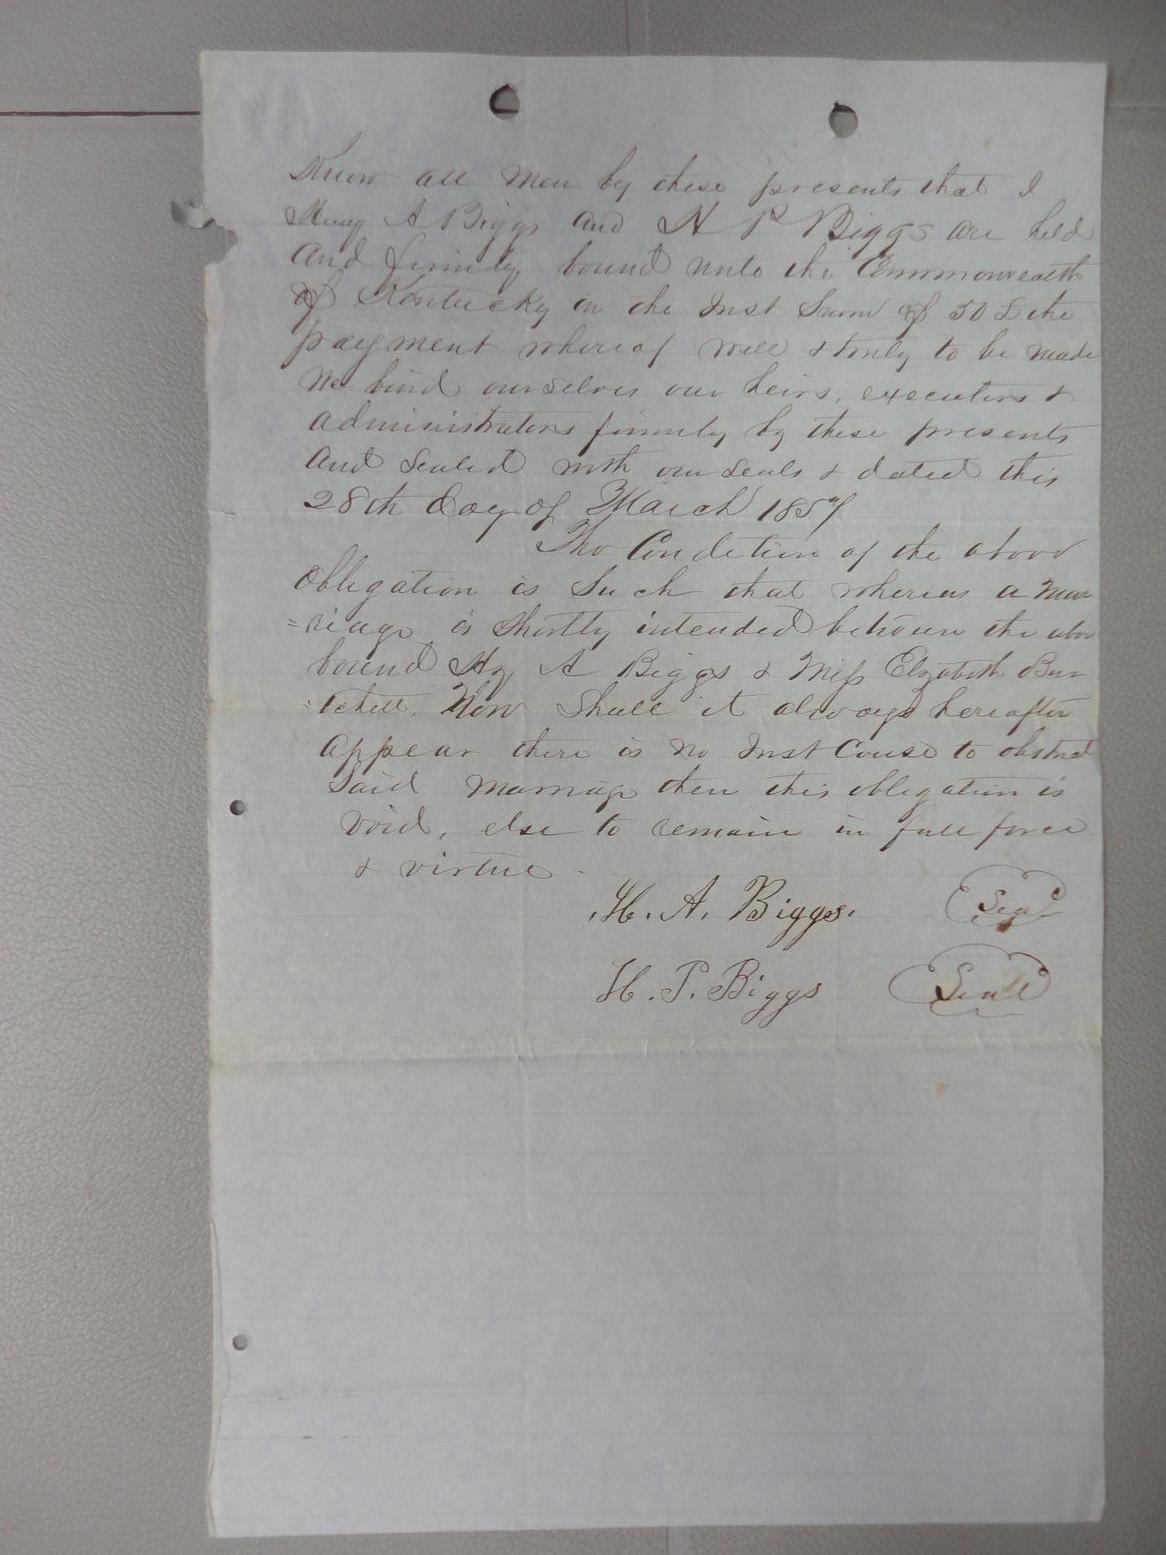 Know all men by these presents that I
Henry A Biggs and H P Biggs are held
and firmly bound unto the Commonwealth
of Kentucky in the Just Sum of 50 £ the
payment whereof well & truly to be made
we bind ourselves our heirs, executors &
administrators firmly by these presents
and Sealed with our Seals & dated this
28th day of March 1857
The Condition of the above
obligation is Such that whereas a Mar
=riage is Shortly intended between the abov
bound Hy A Biggs & Miss Elizabeth Bur
=tchett. Now Shall it always hereafter
appear there is no Just Cause to obstruct
Said marriage then this obligation is
void, else to remain in full force
& virtue.
H. A. Biggs. Seal
H. P. Biggs Seal